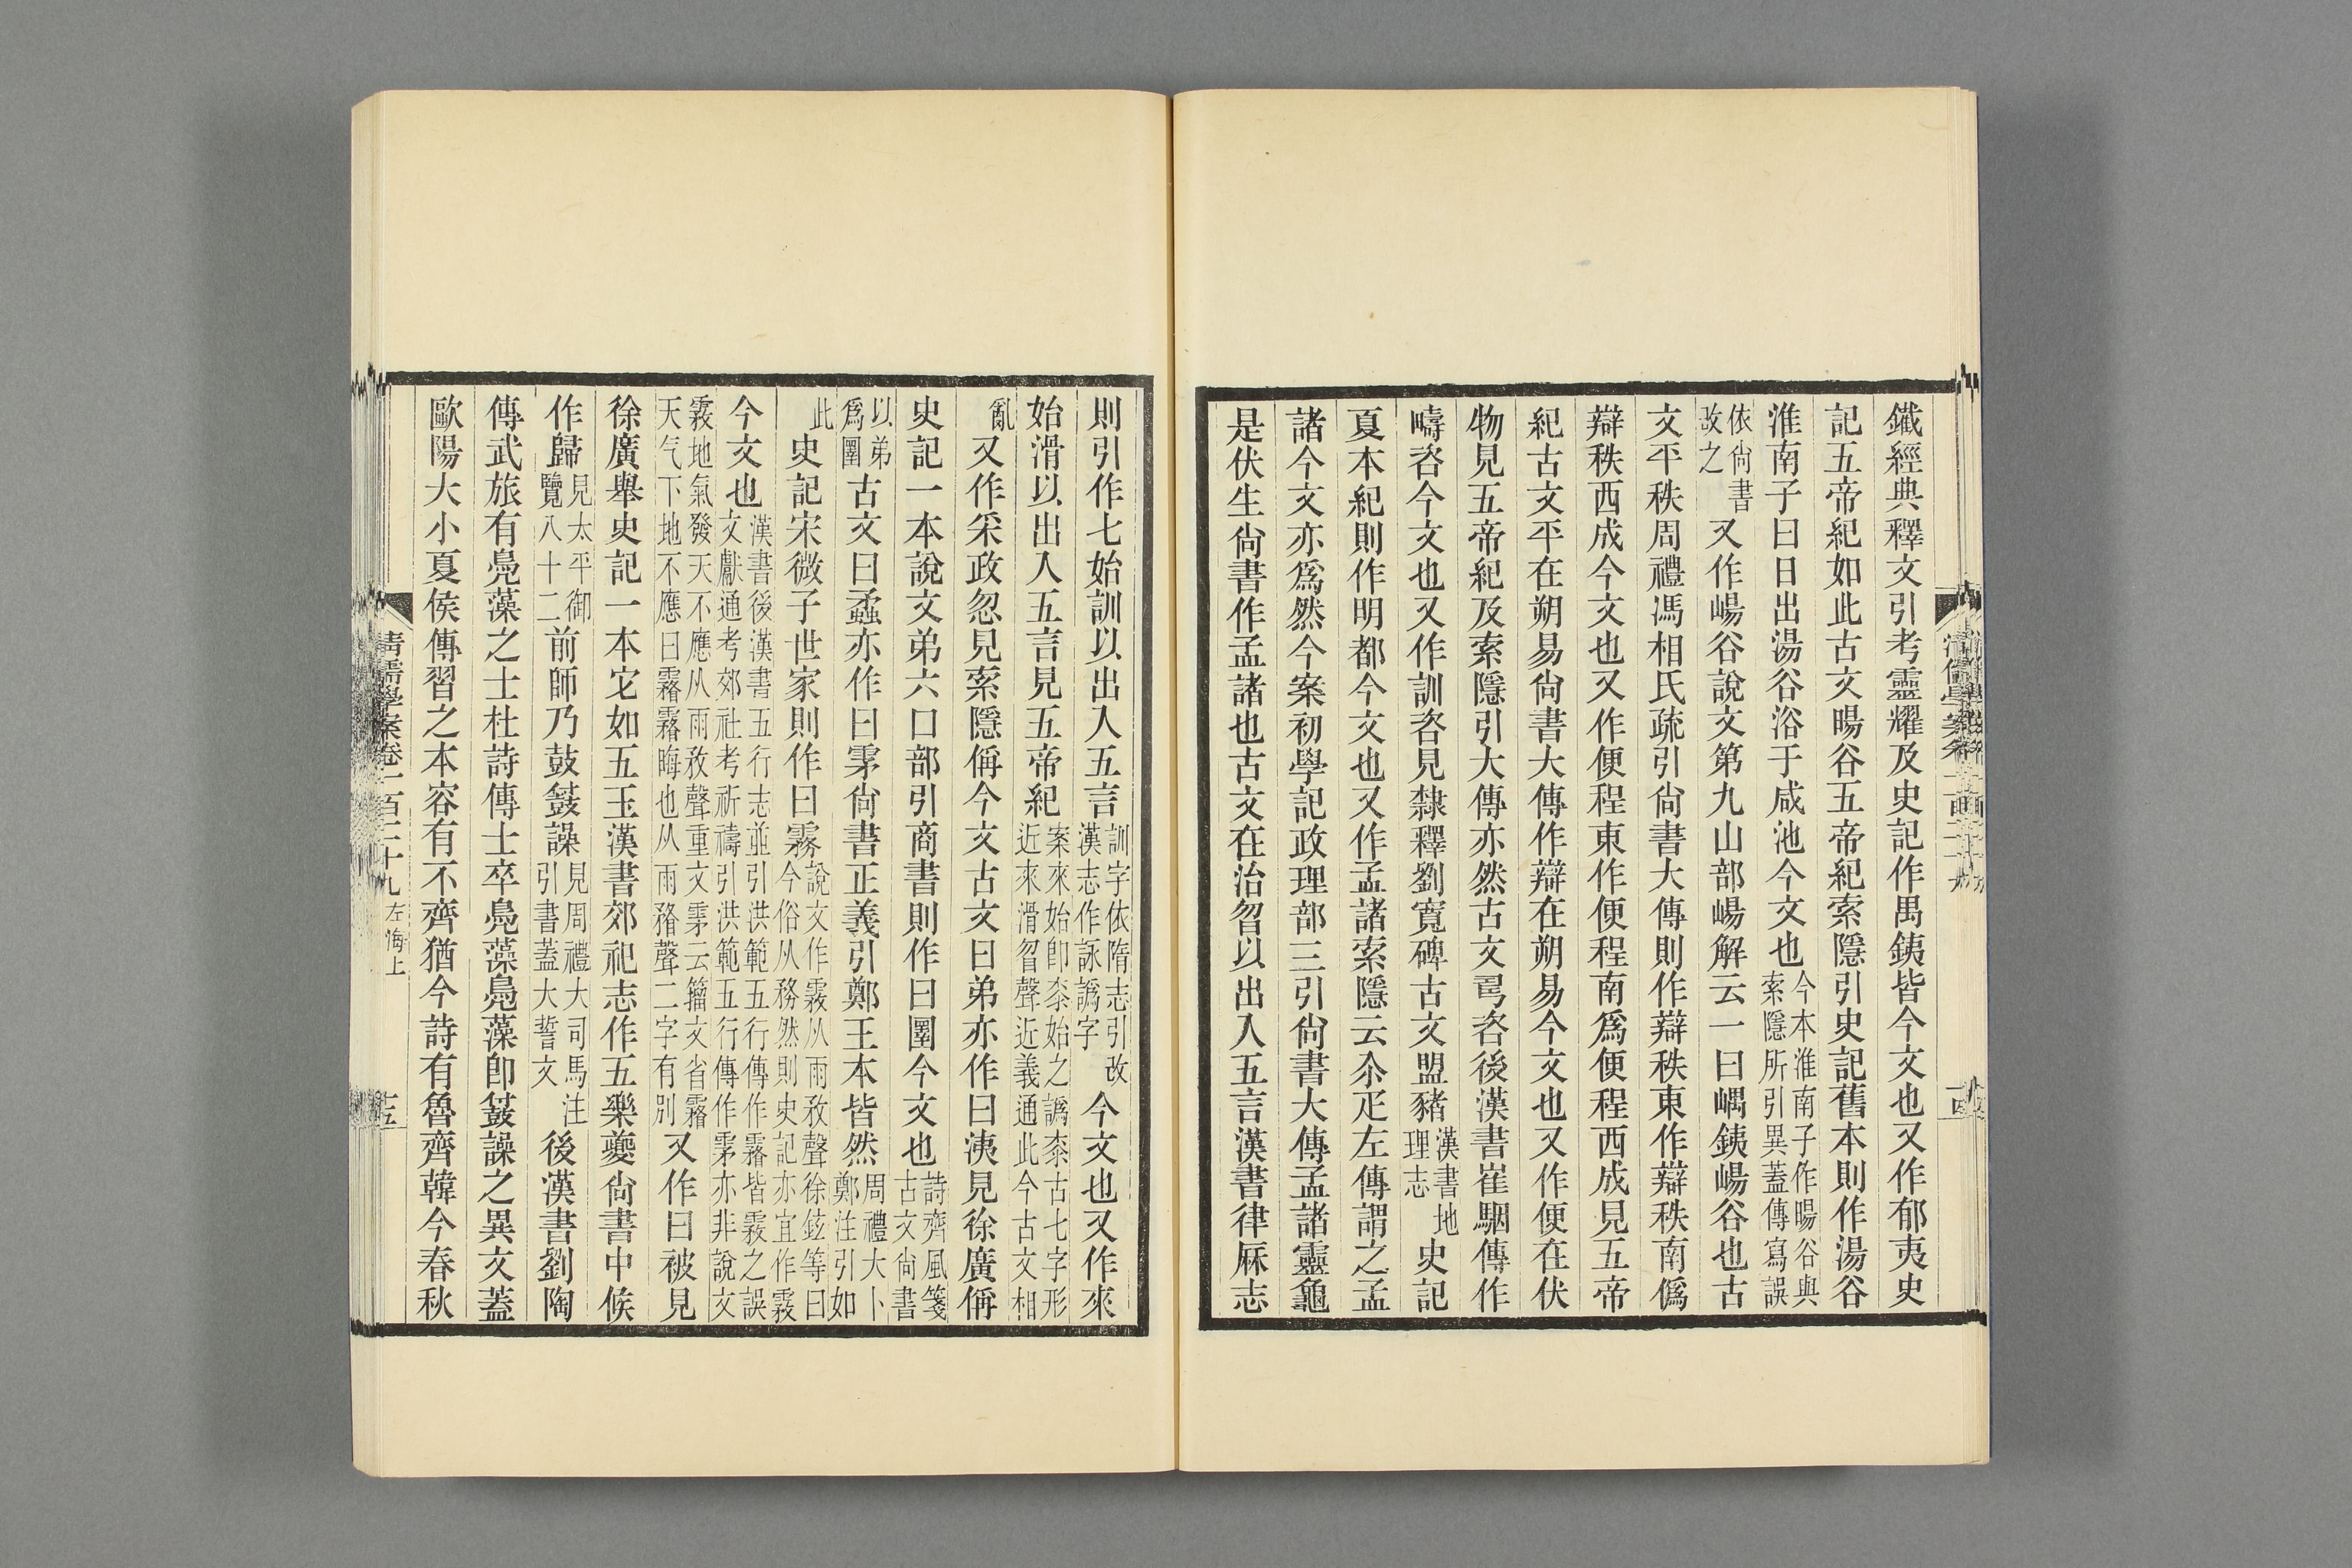 鐵經典釋文引考靈耀及史記作禺銕皆今文也又作郁夷史
記五帝紀如此古文暘谷五帝紀索隱引史記舊本則作湯谷
淮南子曰日出湯谷浴于咸池今文也今本淮南子作暘谷與索隱所引異蓋傳寫誤
依尙書改之又作崵谷說文第九山部崵解云一曰嵎銕崵谷也古
文平秩周禮馮相氏疏引尙書大傳則作辯秩東作辯秩南僞
辯秩西成今文也又作便程東作便程南爲便程西成見五帝
紀古文平在朔易尙書大傳作辯在朔易今文也又作便在伏
物見五帝紀及索隱引大傳亦然古文咨後漢書崔駰傳作
疇咨今文也又作訓咨見隸釋劉寬碑古文盟豬漢書地理志史記
夏本紀則作明都今文也又作孟諸索隱云尒疋左傳謂之孟
諸今文亦爲然今案初學記政理部三引尙書大傳孟諸靈龜
是伏生尙書作孟諸也古文在治曶以出入五言漢書律厤志
則引作七始訓以出入五言訓字依隋志引改漢志作詠譌字今文也又作來
始滑以出入五言見五帝紀案來始卽桼始之譌桼古七字形近來滑曶聲近義通此今古文相
亂又作采政忽見索隱偁今文古文曰弟亦作曰洟見徐廣偁
史記一本說文弟六口部引商書則作曰圛今文也詩齊風箋古文尙書
以弟爲圛古文曰蟊亦作曰雺尙書正義引鄭王本皆然周禮大卜鄭注引如
此史記宋微子世家則作曰霿說文作霿从雨敄聲徐鉉等曰今俗从務然則史記亦宜作霿
今文也漢書後漢書五行志並引洪範五行傳作霿皆霿之誤文獻通考郊社考祈禱引洪範五行傳作雺亦非說文
霿地氣發天不應从雨敄聲重文雺云籀文省霿天气下地不應曰霿霿晦也从雨瞀聲二字有別又作曰被見
徐廣舉史記一本它如五玉漢書郊祀志作五樂夔尙書中候
作歸見太平御覽八十二前師乃鼓鼜譟見周禮大司馬注引書蓋大誓文後漢書劉陶
傳武旅有鳧藻之士杜詩傳士卒鳧藻鳧藻卽鼜譟之異文蓋
歐陽大小夏侯傳習之本容有不齊猶今詩有魯齊韓今春秋
清儒學案卷一百三十九 左海上
十五